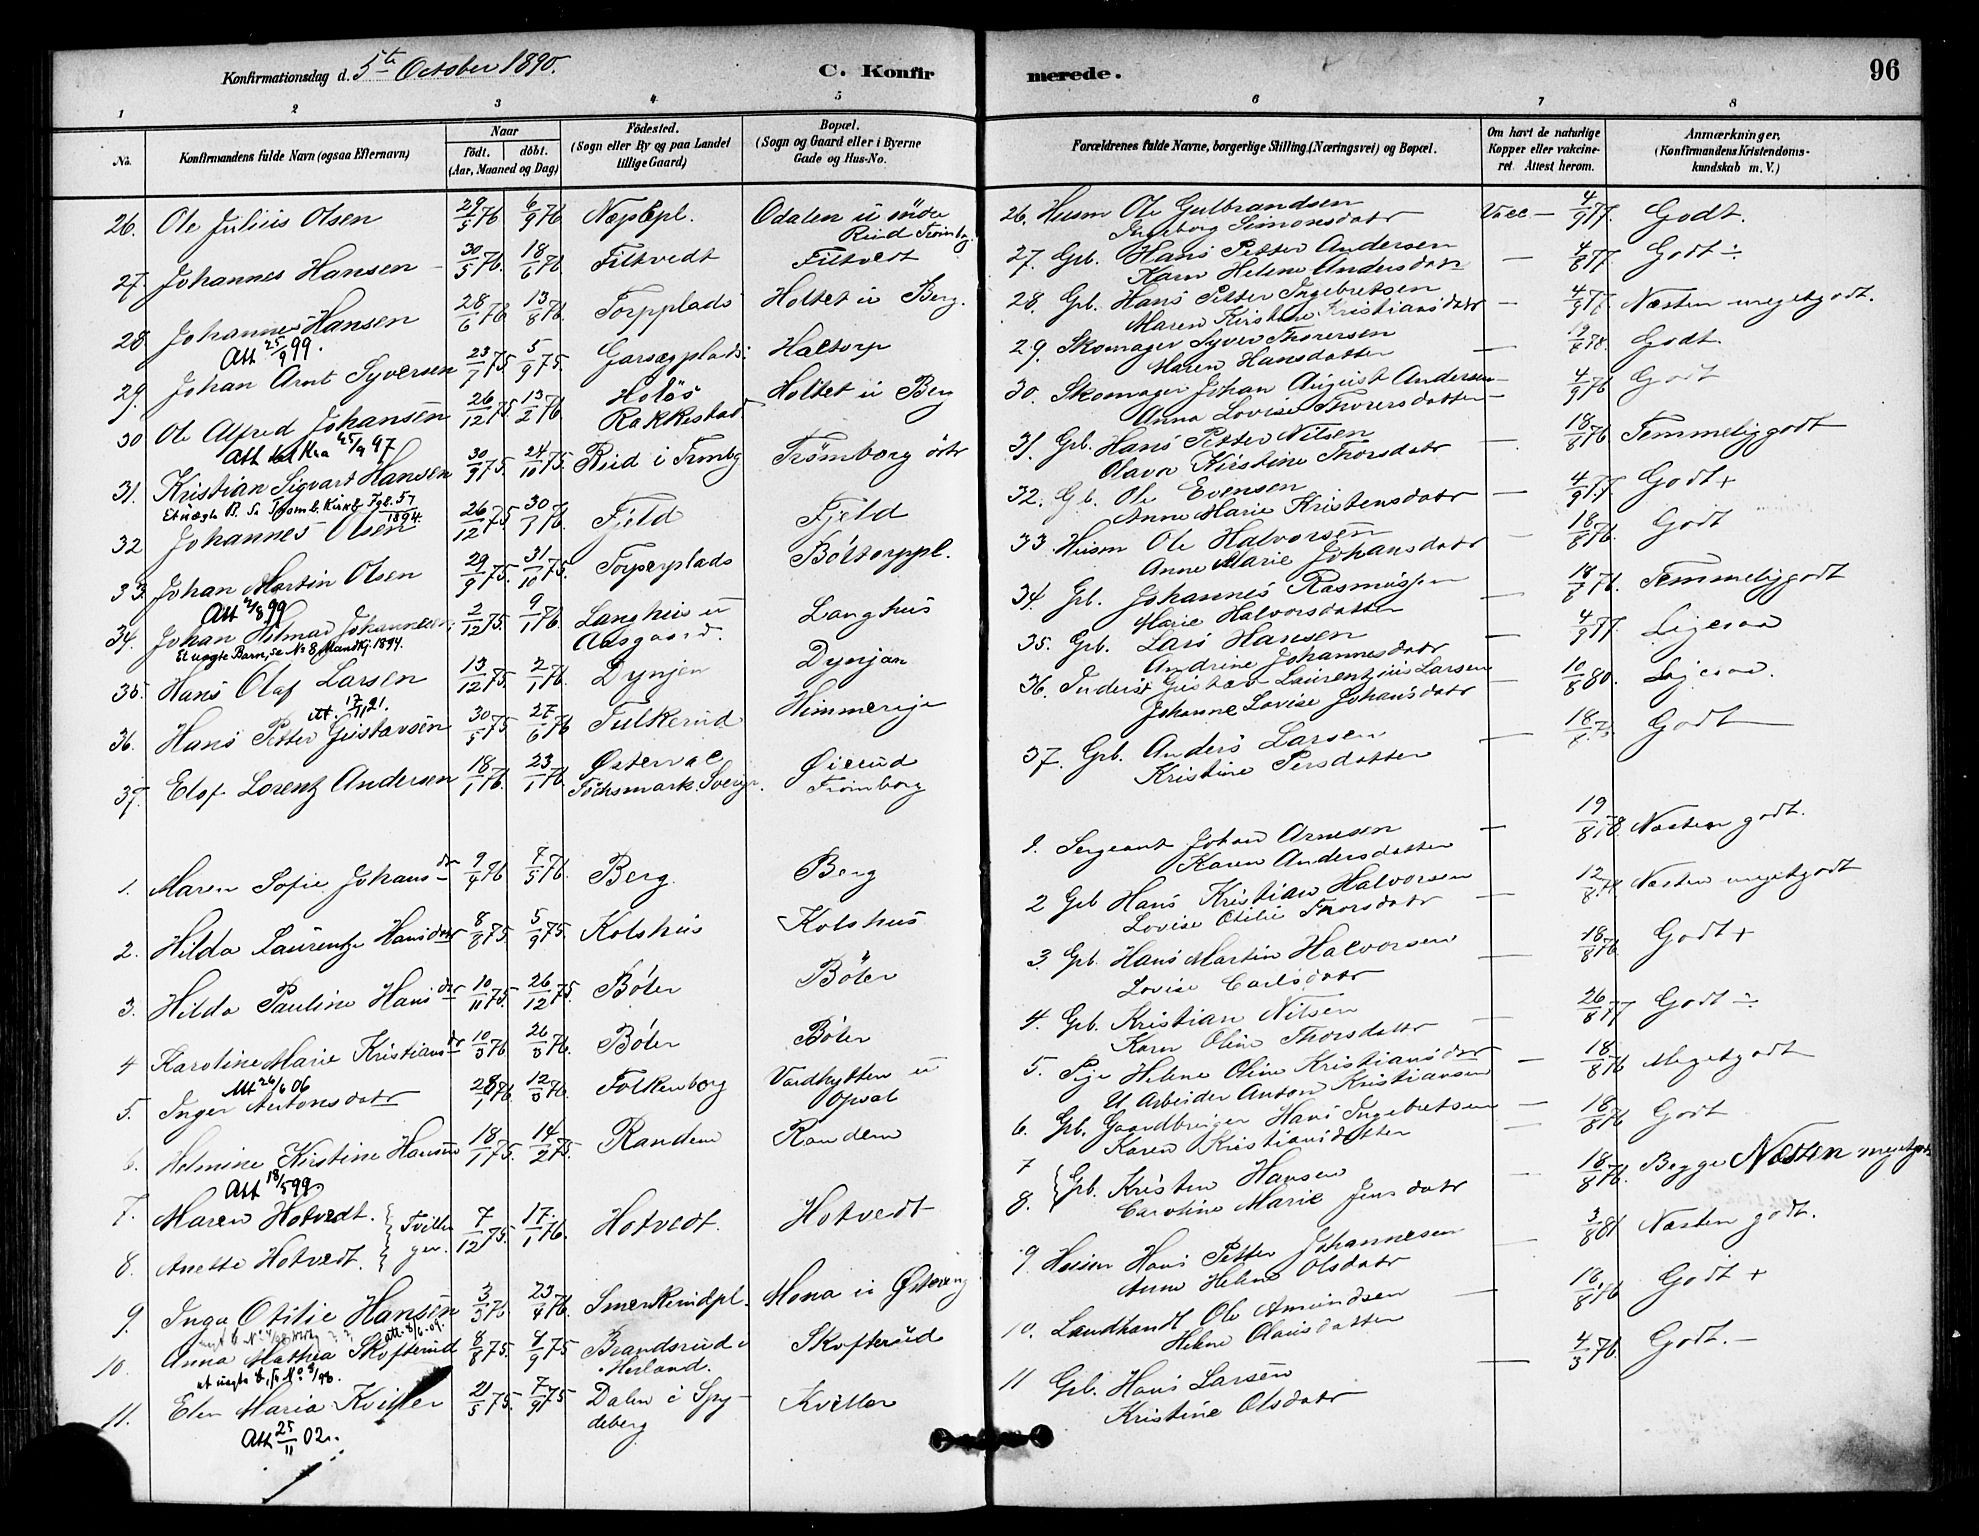 Konfirmationsdag d. 5te October 1890.
C. Konfirmerede.
96
1 2 3 4 5 6 7 8
No. Konfirmandens fulde Navn (ogsaa Efternavn)
Naar födt. döbt. (Aar, Maaned og Dag)
Födested. (Sogn eller By og paa Landet tillige Gaard)
Bopæl. (Sogn og Gaard eller i Byerne Gade og Hus-No.
Forældrenes fulde Navne, borgerlige Stilling (Næringsvei) og Bopæl.
Om havt de naturlige Kopper eller vakcineret. Attest herom.
Anmærkninger. (Konfirmandens Kristendomskundskab m. V.)
26. Ole Julius Olsen 29/5 76 6/9 76 Næsbpl. Odalen u søndre Rud Trømbg. 26. Husm Ole Gulbrandsen Ingeborg Simonsdatr Vacc — 4/9 77. Godt.
27. Johannes Hansen 30/5 76. 18/6 76 Filtvedt Filtvedt 27. Grb. Hans Petter Andersen Karn Helene Andersdatr — 4/8 77. Godt ÷
28 Johannes Hansen 28/6 76 13/8 76. Torpplads Holtet u Berg. 28. Grb. Hans Petter Ingebretsen Maren Kirstine Kristiansdatr — 4/9 77 Næsten megetgodt.
Att 25/9 99.
29. Johan Arnt Syversen 23/7 75 5/9 75. Haltorp 29. Skomager Syver Thoresen Maren Hansdatter — Godt
30 Ole Alfred Johansen 26/12 75 13/2 76. Holøs Rakkestad Holtet u Berg 30. Skomager Johan August Andersen Anna Lovise Thorersdatter — 4/9 76 Godt
31. Kristian Sigvart Hansen 30/9 75 24/10 75. Rud i Trmbg Trømborg østr 31. Grb. Hans Petter Nilsen Olava Kirstine Thorsdatr — 18/8 76 Temmeliggodt
32 Johannes Olsen 26/12 75 30/1 76. Fjeld Fjeld 32. Gb. Ole Evensen Anne Marie Kristensdatr — 4/9 77 Godt +
33. Johan Martin Olsen 29/9 75. 31/10 75. Torperplads Böltorppl. 33 Husm Ole Halvorsen Anne Marie Johansdatr — 18/8 76. Godt
34. Johan Hilmar Johannesen 2/12 75. 9/1 76. Langhus u Aasgaard. Langhus 34. Grb. Johannes Rasmussen Marie Halvorsdatter 18/8 76. Temmeliggodt
Et uægte Barn, se No 8 Mandkj. 1894.
35. Hans Olaf Larsen 13/12 75 2/1 76. Dynjen Dynjan 35. Grb. Lars Hansen Andrine Johannesdatr — 4/9 77 Ligesaa
36. Hans Petter Gustavsen 30/5 75 27/6 76 Fulkerud Himmerige 36. Inderst Gustav Laurentzius Larsen Johanne Lovise Johansdatr — 10/8 80. Ligesaa.
37. Elof Lorentz Andersen 18/1 76. 23/1 76. Østervae Töchsmark. Sverge. Øierud Trömborg 37. Grb. Anders Larsen Kristine Persdatter — Godt
1. Maren Sofie Johansdr 9/4 76 7/5 76. Berg Berg 1. Sergeant Johan Arnesen Karen Andersdatter — 19/8 78 Næsten godt.
2. Hilda Laurentze Hansdatr 8/8 75 5/9 75. Kolshus Kolshus 2 Grb Hans Kristian Halvorsen Lovise Otilie Thorsdatr — Næsten megetgodt
3. Hilda Pauline Hansdr 10/11 75. 26/12 75. Böler Böler 3. Grb. Hans Martin Halvorsen Lovise Carlsdatr 18/8 76 Godt +
4 Karoline Marie Kristiansdr 10/3 76 26/3 76. Böler Böler 4. Grb. Kristian Nilsen Karn Oline Thorsdatr — 26/8 77 Godt ÷
5. Inger Antonsdatr 28/1 76 12/3 76. Folkenborg Vardhytten u Opsal 5. Pige Helene Oline Kristiansdatr U Arbeider Anton Kristiansen — 18/8 76 Megetgodt
6. Helmine Kirstine Hansen 18/1 75. 14/2 75. Randem Randem 6. Grb. Gaardbruger Hans Ingebretsen Karen Kristiansdatter — 18/8 76 Godt
Att 18/5 99.
7. Maren Hotvedt. } Tvillinger. 7/12 75. 17/1 76. Hotvedt. Hotvedt 7 8. { Grb. Kristen Hansen Caroline Marie Jensdatr — 18/8 76. Begge Næsten megetgodt
8. Anette Hotvedt.
9. Inga Otilie Hansen 23/4 76. Smerkerudpl. Mona u Østereng 9 Husm Hans Petter Johannesen Anne Helene Olsdatr — 3/8 81 Næsten godt.
10. Anna Mathea Skofterud 8/8 75. 4/9 75 Brandsrud i Herland. Skofterud 10. Landhandl Ole Amundsen Helene Olausdatter — 18/8 76 Godt +
11. Elen Maria Kviller 21/5 75. 7/9 75 Dalen i Spydeberg Kviller 11 Grb. Hans Larsen Kristine Olsdatr — 4/3 76. Godt. —
Att 25/11 02.